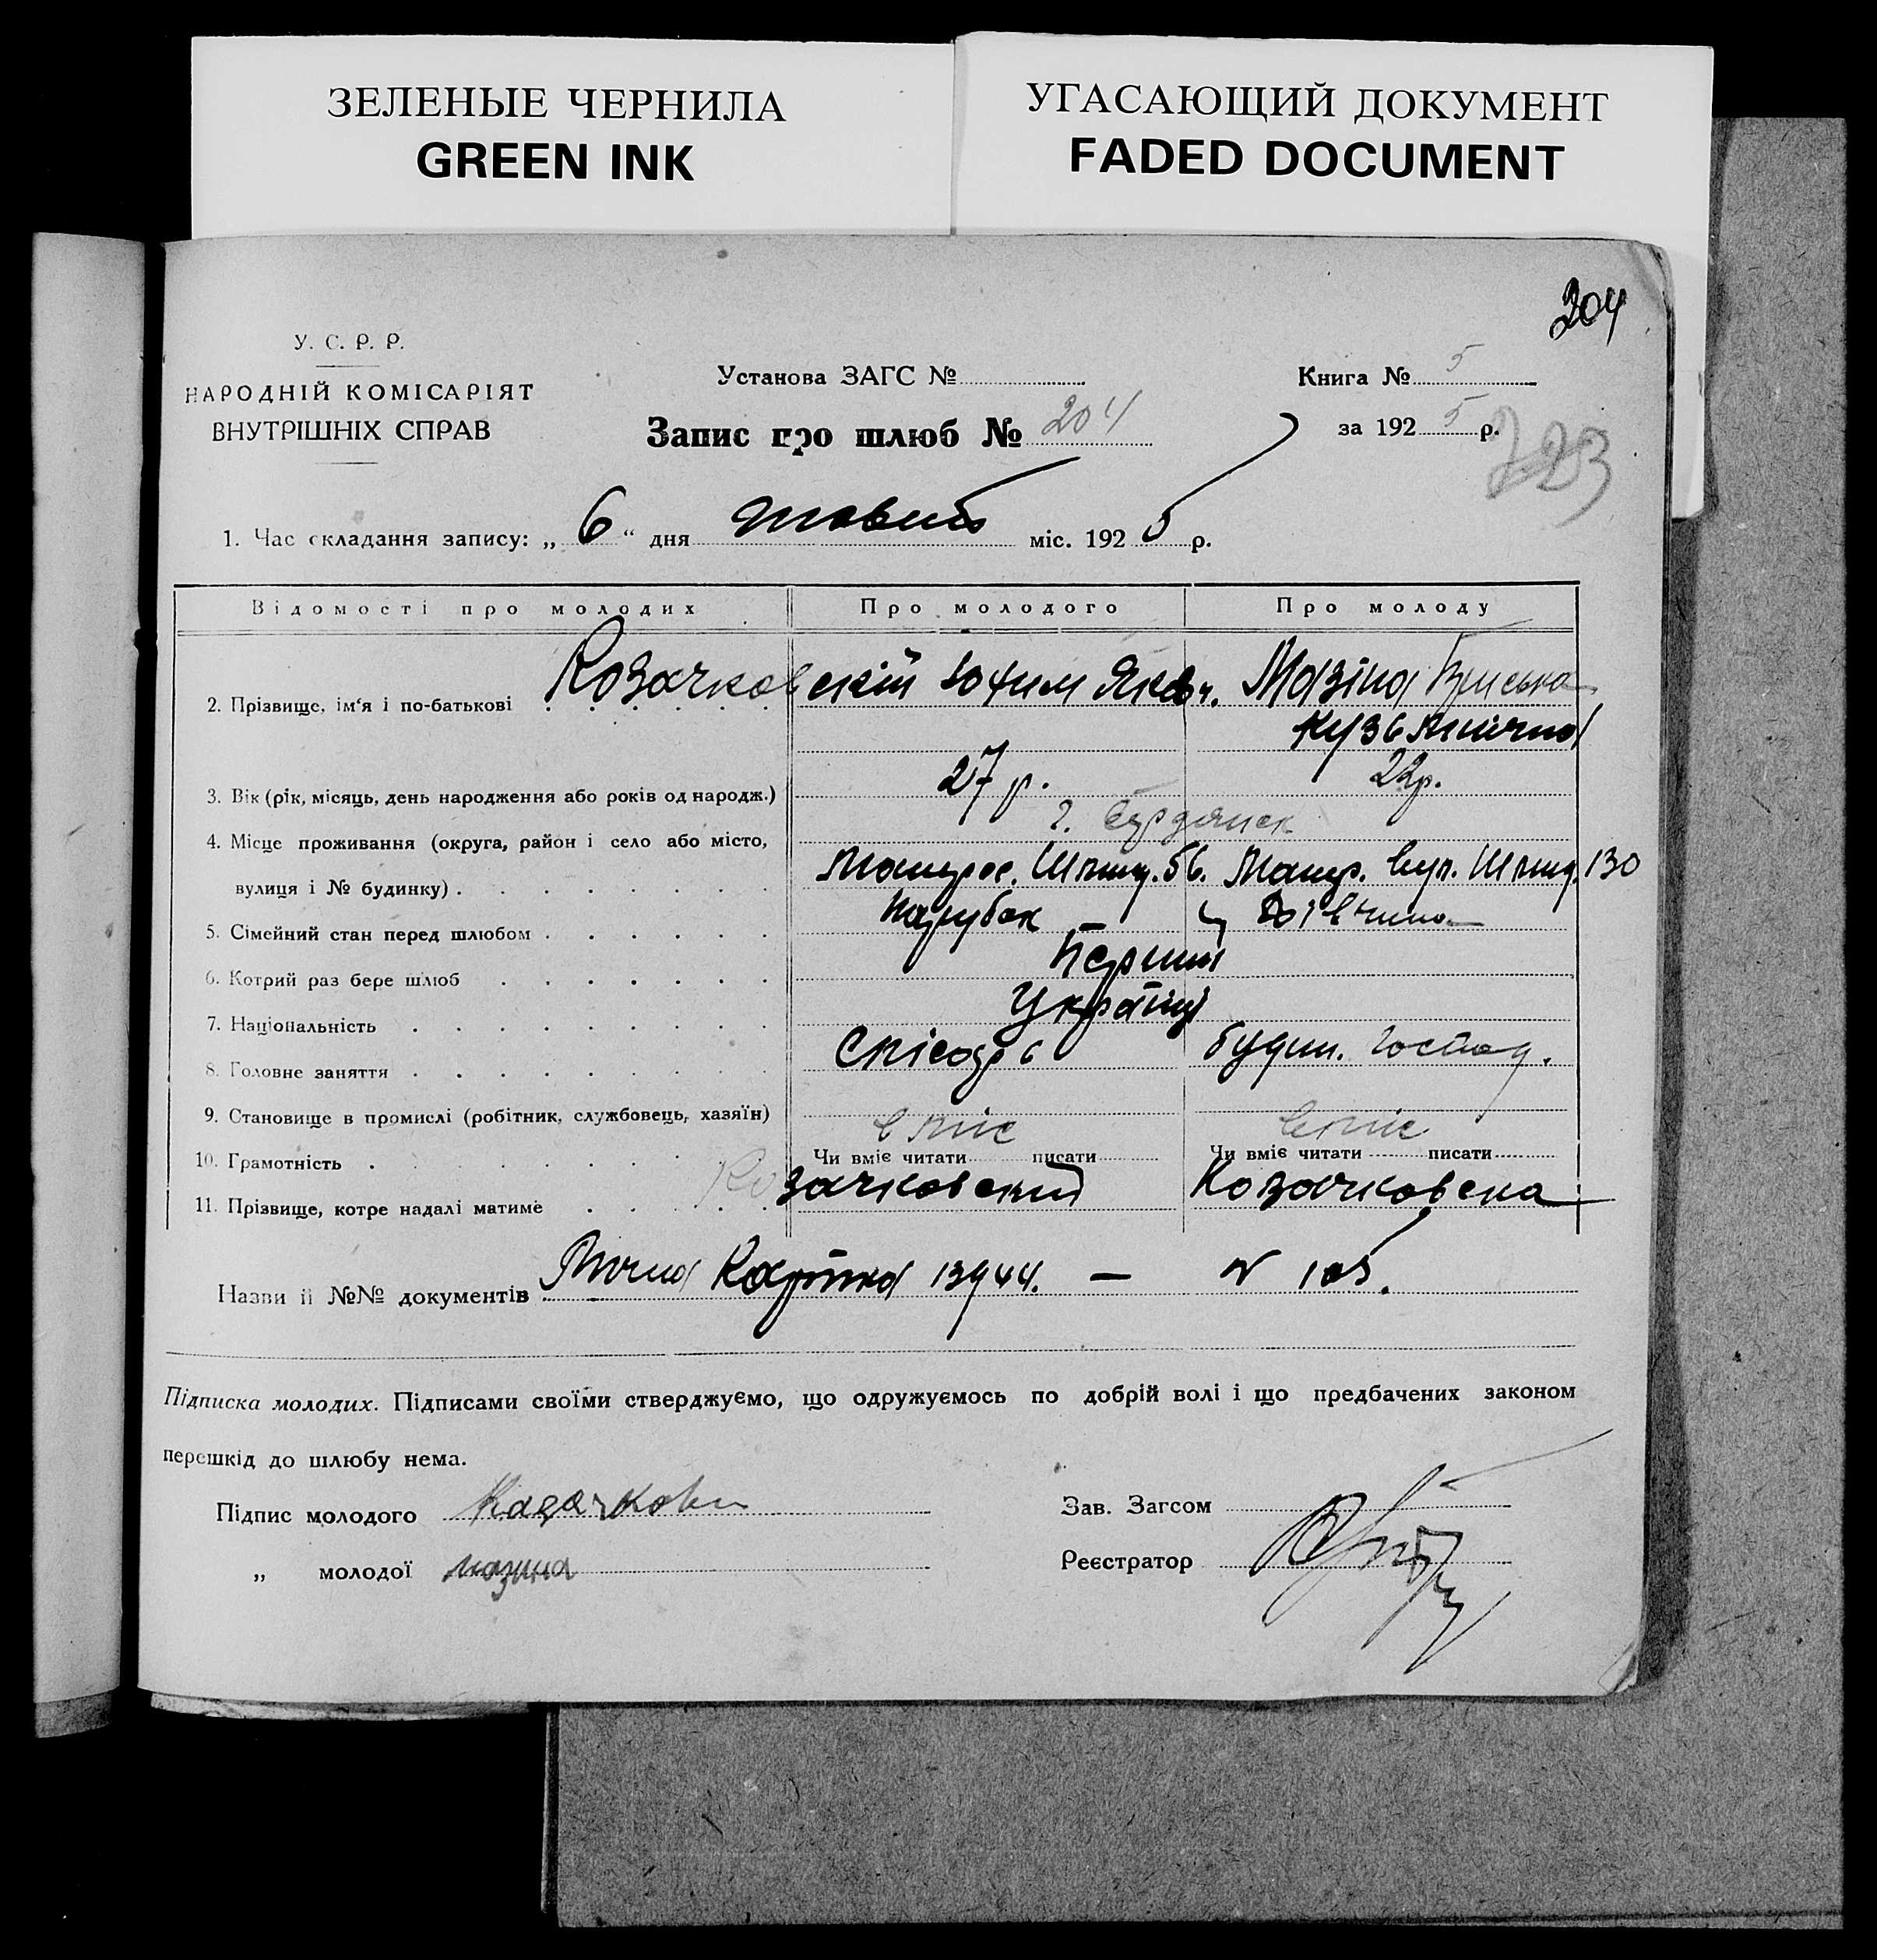 ЗЕЛЕНЫЕ ЧЕРНИЛА
GREEN INK
УГАСАЮЩИЙ ДОКУМЕНТ
FADED DOCUMENT
204
У. С. Р. Р.
НАРОДНІЙ КОМІСАРІЯТ
ВНУТРІШНІХ СПРАВ
Установа ЗАГС №
Запис про шлюб № 204
Книга № 5
за 192 5 р.
723
1. Час складання запису: „ 6 “ дня жовтн міс. 192 5 р.
Відомості про молодих Про молодого Про молоду
2. Прізвище, ім'я і по-батькові Козачковскій Юхим Яков. Мазіна
Кузьмінічна
3. Вік (рік, місяць, день народження або років од народж.) 27 р. 22р.
4. Місце проживання (округа, район і село або місто, г. Бердянск
вулиця і № будинку) Матрос. Шмид. 56. Матр. вул. Шмид. 130
5. Сімейний стан перед шлюбом парубок дівчина
6. Котрий раз бере шлюб Перший
7. Національність Українці
8. Головне заняття Слісарь будин. господ.
9. Становище в промислі (робітник, службовець, хазяїн)
10. Грамотність вміє Чи вміє читати писати вміє Чи вміє читати писати
11. Прізвище, котре надалі матиме Козачковский Козачковска
Назви й №№ документів Вічна Картка 13944. — № 105.
Підписка молодих. Підписами своїми стверджуємо, що одружуємось по добрій волі і що предбачених законом
перешкід до шлюбу нема.
Підпис молодого
„ молодої Мазина
Зав. Загсом
Реєстратор